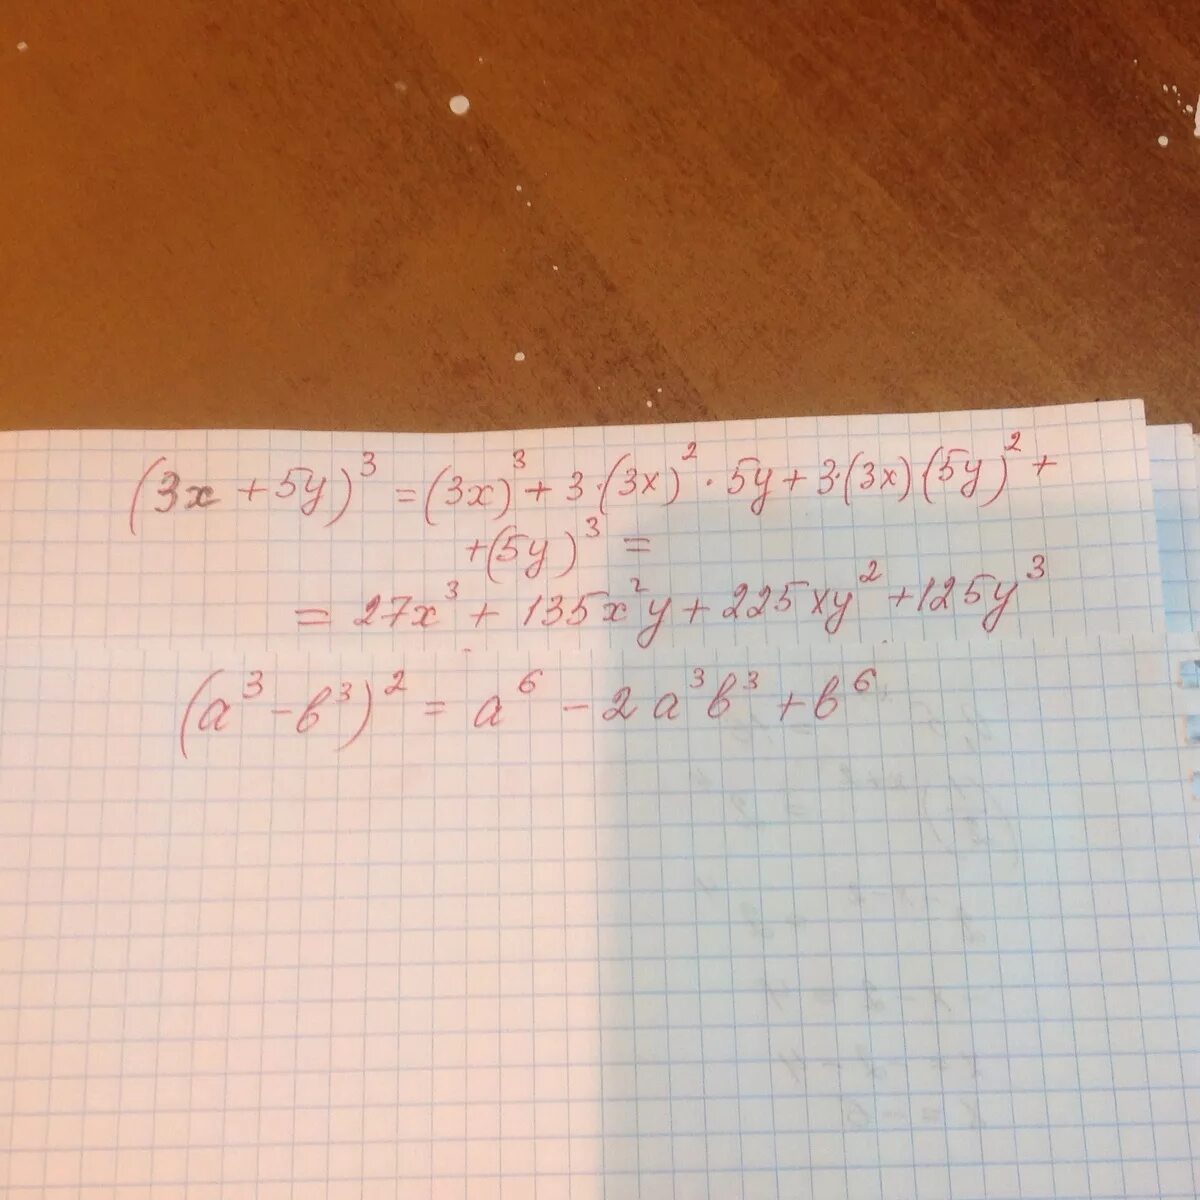 (3x + 5y)³ = (3x)³ + 3·(3x)² · 5y + 3·(3x)(5y)² +
+(5y)³ =
= 27x³ + 135x²y + 225xy² + 125y³
(a³ – b³)² = a⁶ – 2a³b³ + b⁶